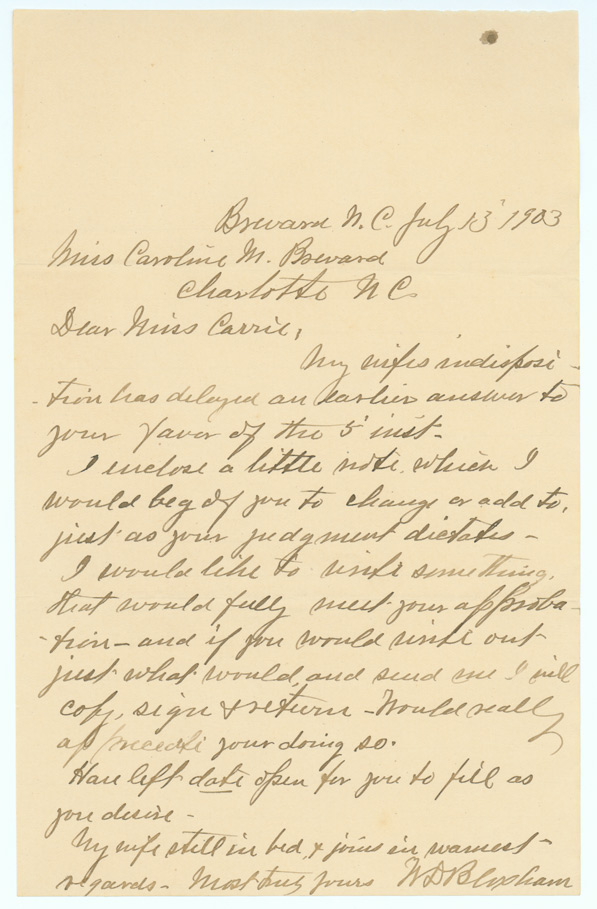 Brevard N.C. July 13' 1903
Miss Caroline M. Brevard
Charlotte N C.
Dear Miss Carrie,
My wifes indisposi-
-tion has delayed an earlier answer to
your favor of the 5' inst-
I enclose a little note which I
would beg of you to change or add to,
just as your judgment dictates -
I would like to write something,
that would fully meet your approba-
-tion - and if you would write out
just what would, and send me - I will
copy, sign & return - Would really
appreceate your doing so.
Have left date open for you to fill as
you desire -
My wife still in bed, & joins in warmest-
regards - Most truly yours W D Bloxham